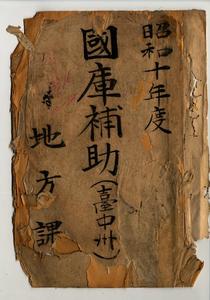 昭和十年度
國庫補助(臺中州)
地方課